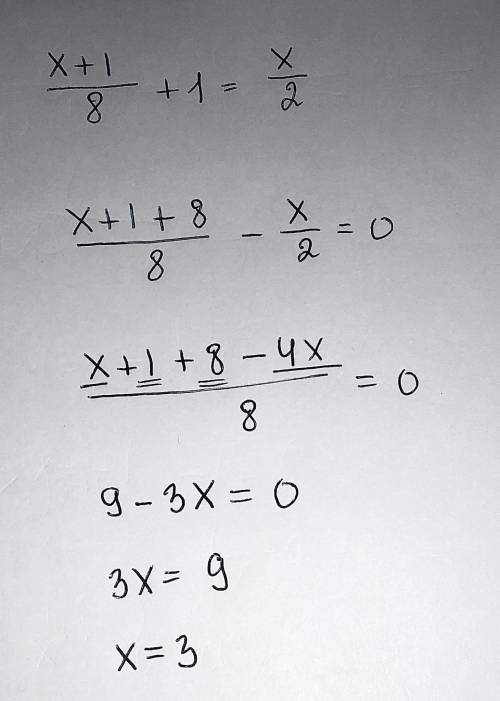 (x+1)/8 + 1 = x/2
(x+1+8)/8 - x/2 = 0
(x+1+8-4x)/8 = 0
9-3x = 0
3x = 9
x = 3